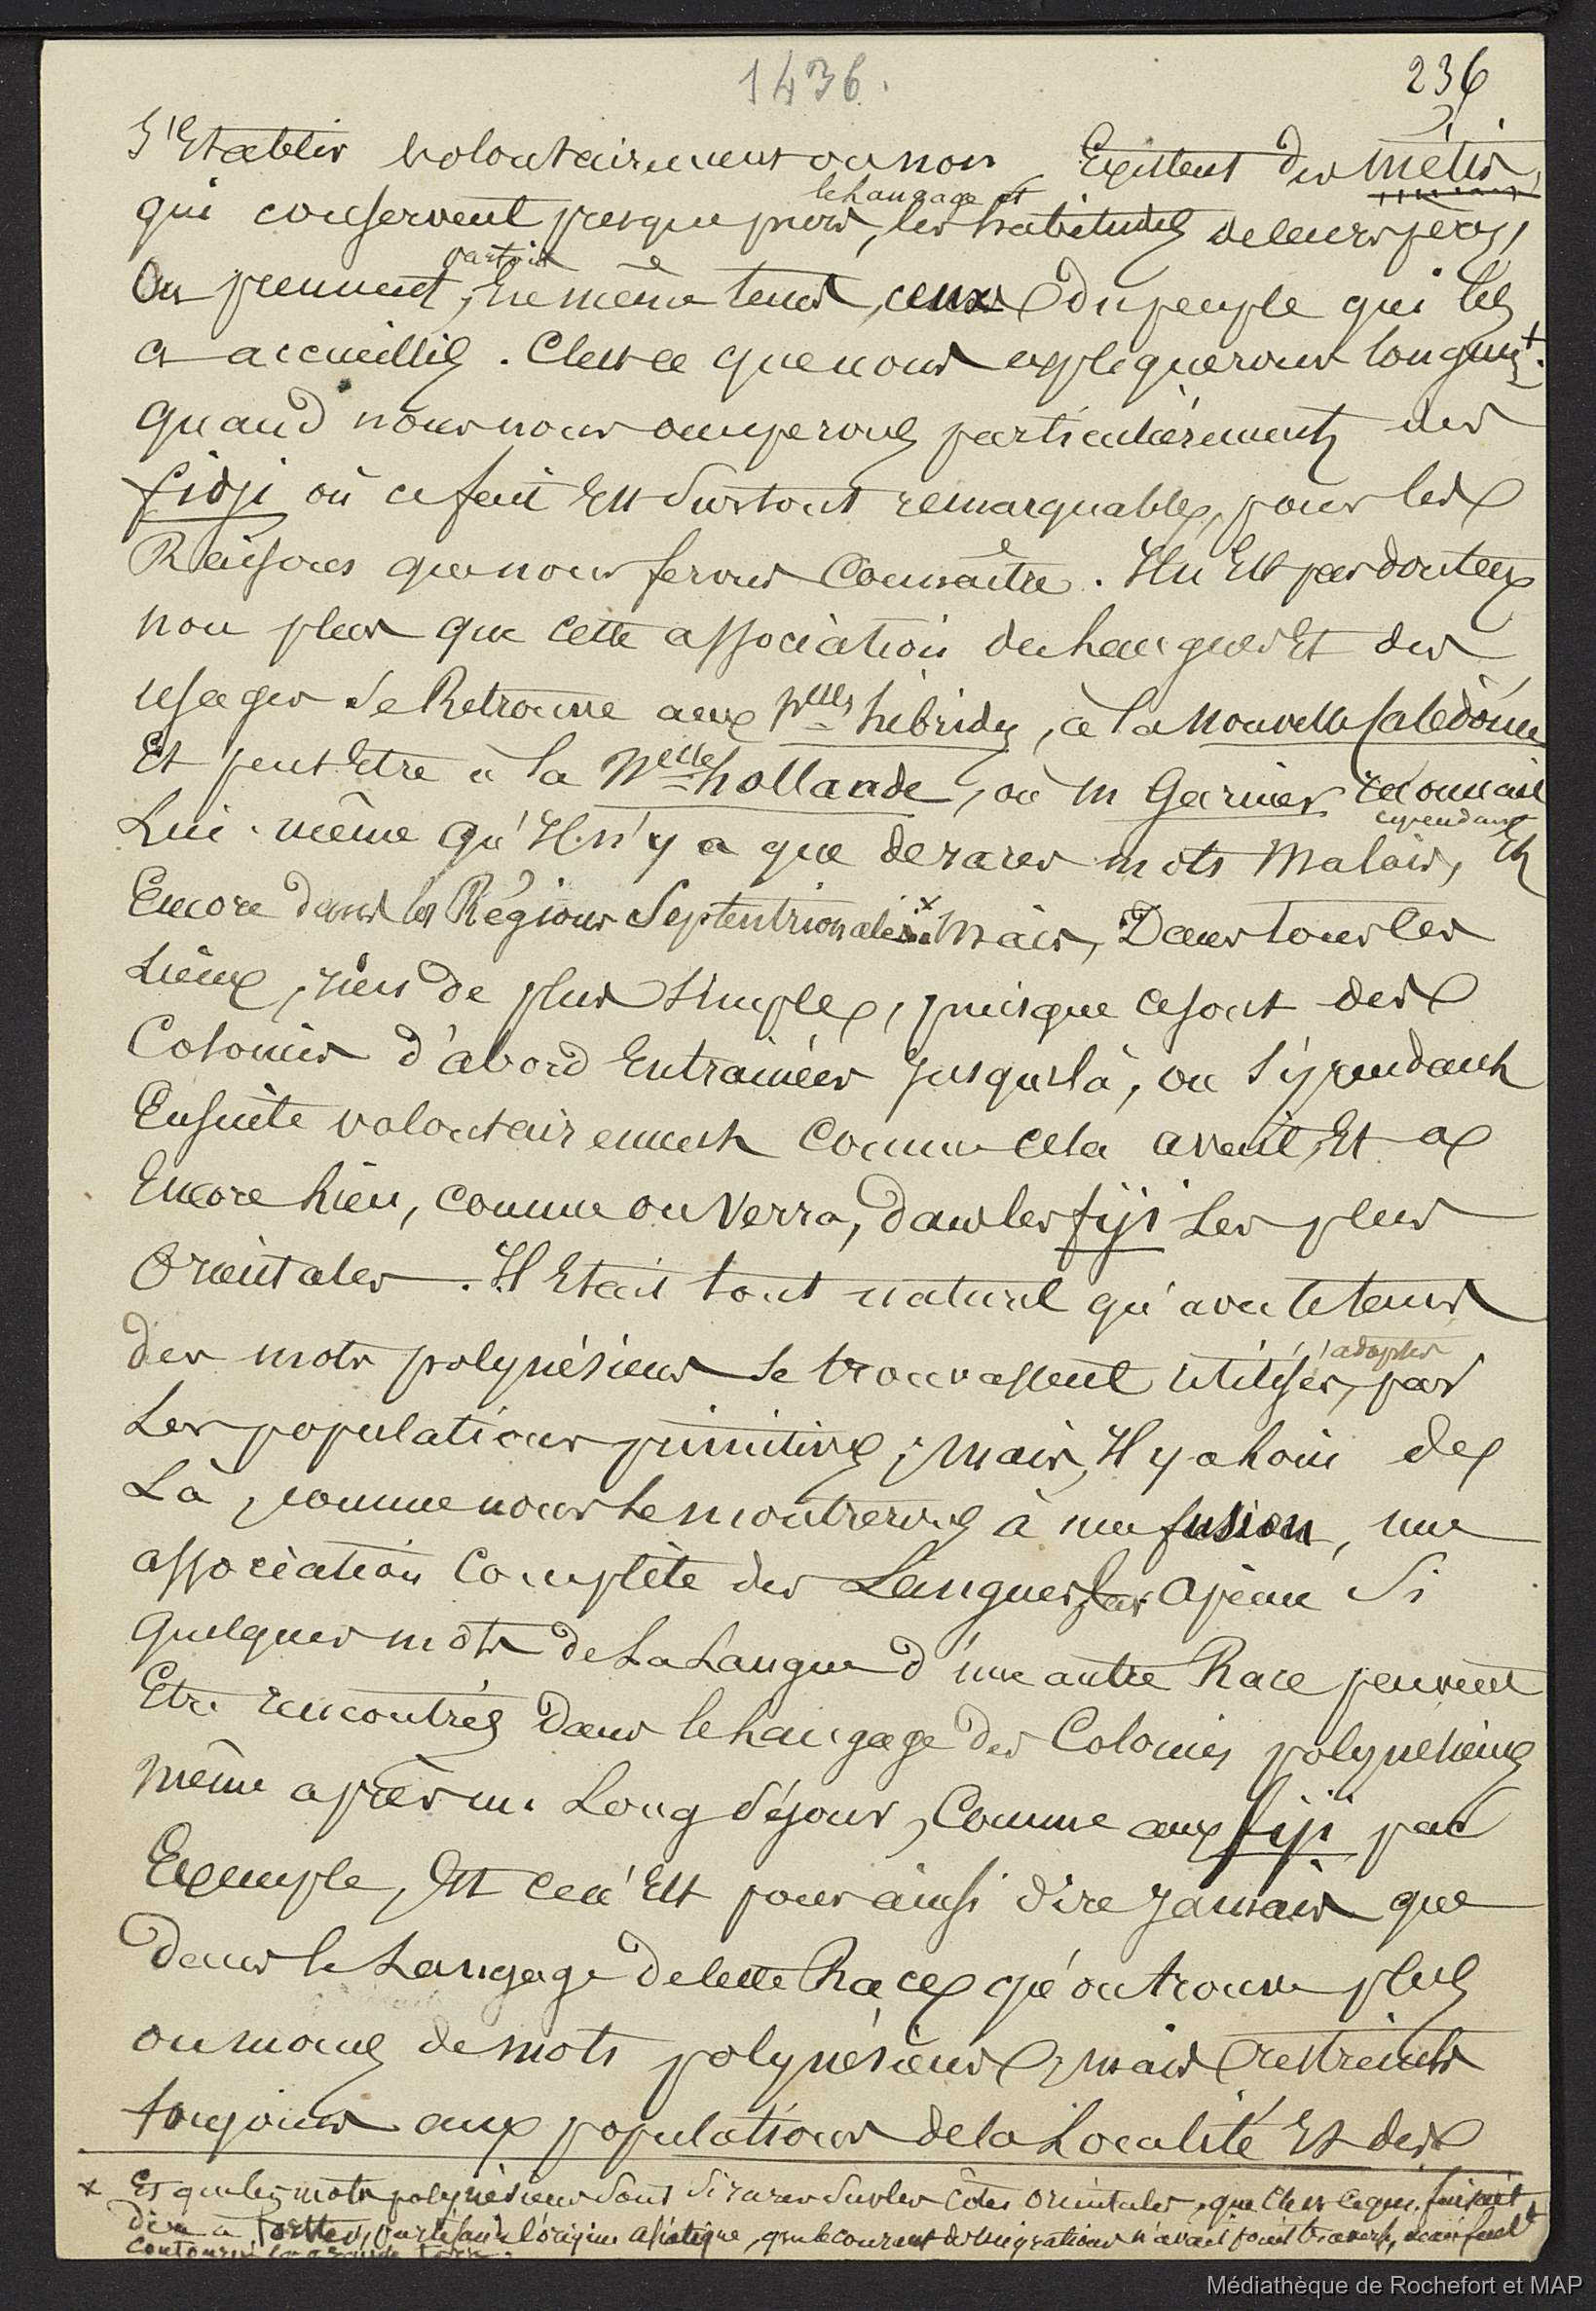 1436.
236
S'Etablir volontairement ou non Existent des métis,
qui conservent presque purs, le langage et les habitudes de leurs pères,
Ou prennent, parfois En même tems, ceux du peuple qui les
a accueillis. C'est ce que nous expliquerons longuemt.
quand nous nous occuperons particulièrement des
fidji où ce fait Est surtout remarquable, pour les
Raisons que nous ferons Connaître. Il n'Est pas douteux
non plus que cette association de Langues Et des
usages se Retrouve aux Nlles hébrides, à la Nouvelle Calédonie
Et peut Etre à la Nelle hollande, où M Garnier reconnait cependant
Lui-même qu'Il n'y a que de rares mots Malais, Et
Encore dans les Régions Septentrionales x. Mais, Dans tous les
Lieux, rien de plus simple, puisque ce sont des
Colonies d'abord Entrainées jusque là, ou s'y rendant
Ensuite volontairement Comme cela avait, Et a
Encore Lieu, comme on Verra, dans les fiji Les plus
Orientales. Il Etait tout naturel qu'avec le tems
des mots polynésiens se trouvassent utilisés, adoptés par
Les populations primitives; mais, Il y a Loin de
Là, comme nous Le montrerons à une fusion, une
association Complète des Langues, car à peine Si
quelques mots de La Langue d'une autre Race peuvent
Etre rencontrés Dans le Langage des Colonies polynésiennes
même après un Long séjour, Comme aux fiji par
Exemple, Et ce n'Est pour ainsi dire jamais que
Dans le Langage de cette Race qu'on trouve plus
ou moins de mots polynésiens, mais restreints
toujours aux populations de la Localité Et des
x Et que les mots polynésiens sont si rares sur les côtes orientales, que c'est ce qui faisait
dire à forster, partisan de l'origine asiatique, que le courant des migrations n'avait point traversé, mais seult
contourné la grande terre.
Médiathèque de Rochefort et MAP